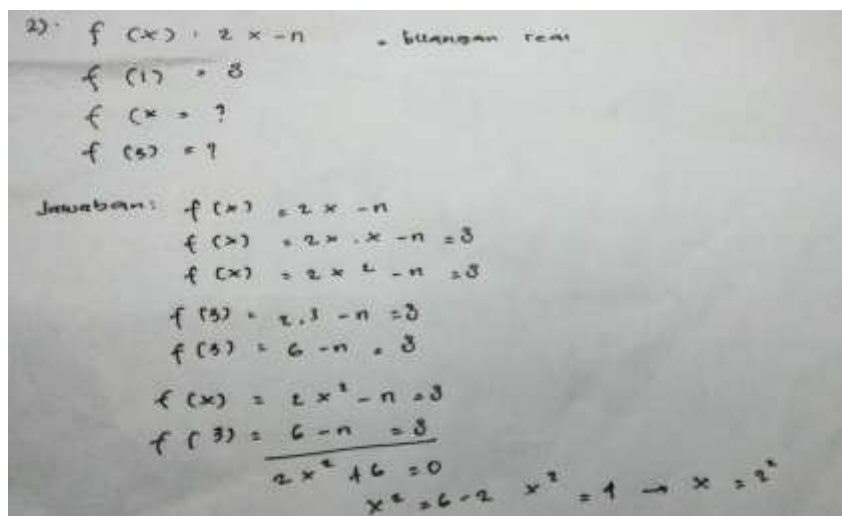 2). f (x) = 2 x - n = bilangan real
f (1) = 3
f (x = ?
f (3) = ?
Jawaban: f (x) = 2 x - n
f (x) = 2x . x - n = 3
f (x) = 2 x² - n = 3
f (3) = 2.3 - n = 3
f (3) = 6 - n = 3
f (x) = 2 x² - n = 3
f (3) = 6 - n = 3
2 x² + 6 = 0
x² = 6 - 2 x² = 4 → x = 2²